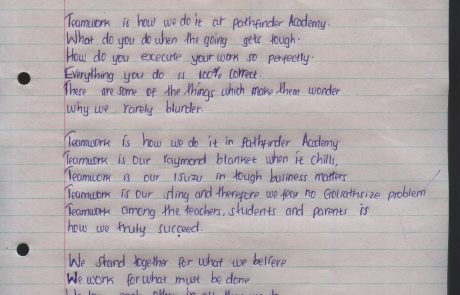 Teamwork is how we do it at Pathfinder Academy.
What do you do when the going gets tough.
How do you execute your work so perfectly.
Everything you do is 100% correct.
These are some of the things which make them wonder
Why we rarely blunder.
Teamwork is how we do it in Pathfinder Academy
Teamwork is our raymond blanket when it chills,
Teamwork is our Isuzu in tough business matters
Teamwork is our sling and therefore we fear no Goliathsize problem
Teamwork among the teachers, students and parents is
how we truly succeed.
We stand together for what we believe
We work for what must be done